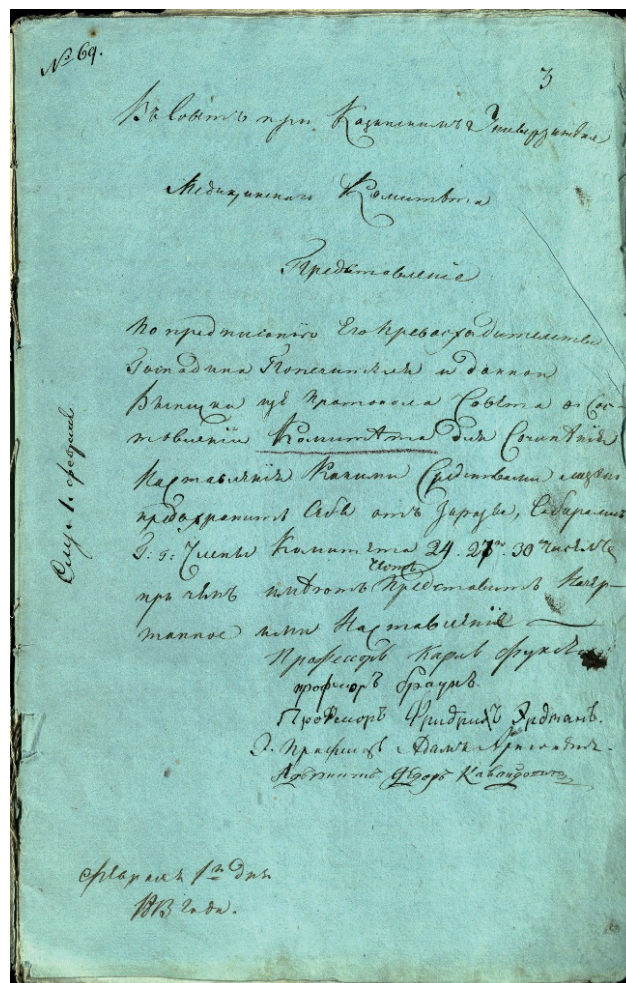 № 69.
3
Въ Совѣтъ при Казанскомъ Университетѣ
Медицинскаго Комитета
Представленіе
По предписанію Его Превосходительства
Господина Попечителя и данной
Выписки изъ Протокола Совѣта о Сос-
тавленіи Комитета для Сочиненія
Наставленія Какими Средствами можно
предохранить Себя отъ Заразы, Собирались
Г: г: Члены Комитета 24. 27го. 30 Чиселъ
при чемъ имѣютъ Честь Представить Начер-
танное ими Наставленіе
Профессоръ Карлъ Фуксъ
профессоръ Браунъ.
Профессоръ Фридрихъ Эрдманъ.
Э. Профессоръ Адамъ
Адъюнктъ Ѳедоръ
Февраля 1го дня
1813 Года.
Слуш. 1. февраля